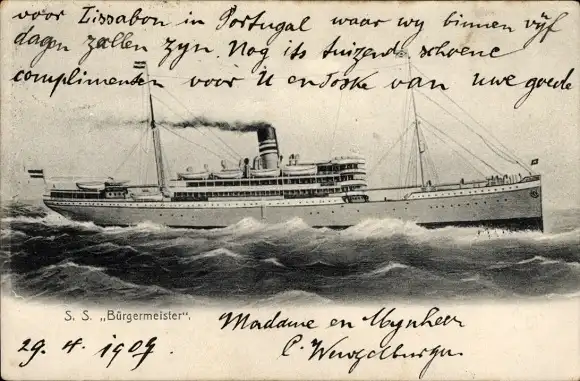 voor Lissabon in Portugal waar wy binnen vyf
dagen zallen zyn. Nog its tuizend schoene
complimenten voor U en doske van uwe goede
S. S. „Bürgermeister".
Madame en Mynheer
29. 4. 1909.
C.